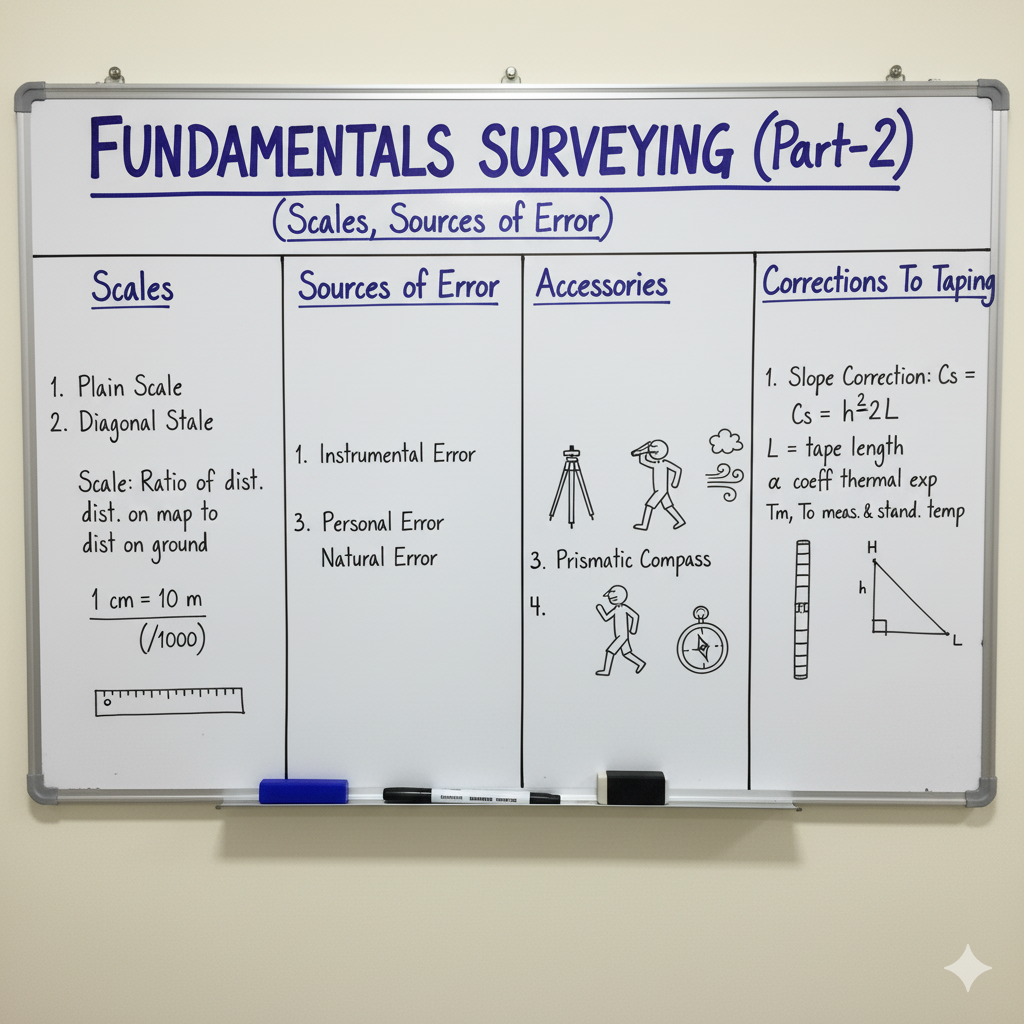 FUNDAMENTALS SURVEYING (Part-2)
(Scales, Sources of Error)
Scales
1. Plain Scale
2. Diagonal Stale
Scale: Ratio of dist.
dist. on map to
dist on ground
1 cm = 10 m
(/1000)
Sources of Error
1. Instrumental Error
3. Personal Error
Natural Error
Accessories
3. Prismatic Compass
4.
Corrections To Taping
1. Slope Correction: Cs =
Cs = h²-2L
L = tape length
α coeff thermal exp
Tm, To meas. & stand. temp
H
h
L